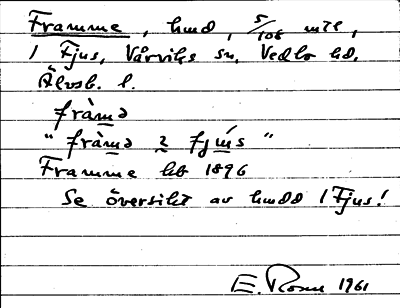 Framme, hmd, 5/106 mtl,
1 Fjus, Vårviks sn, Vedbo hd,
Älvsb. l.
fràmə
"fràmə 2 fjú́s"
Framme hb 1896
Se översikt av hmdd 1 Fjus!
E. Rosn 1961